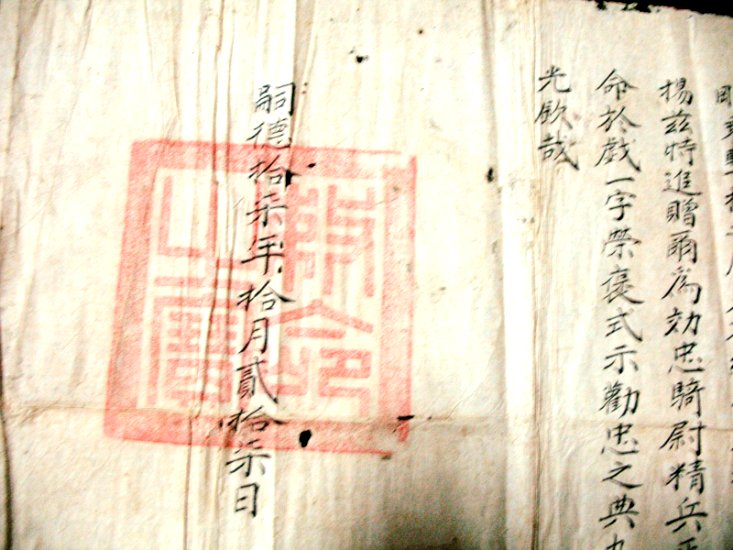 揚茲特進贈爾為効忠騎尉精兵
命於戲一字榮褒式示勸忠之典
光欽哉
嗣德拾柒年拾月貳拾柒日
敕命之寶